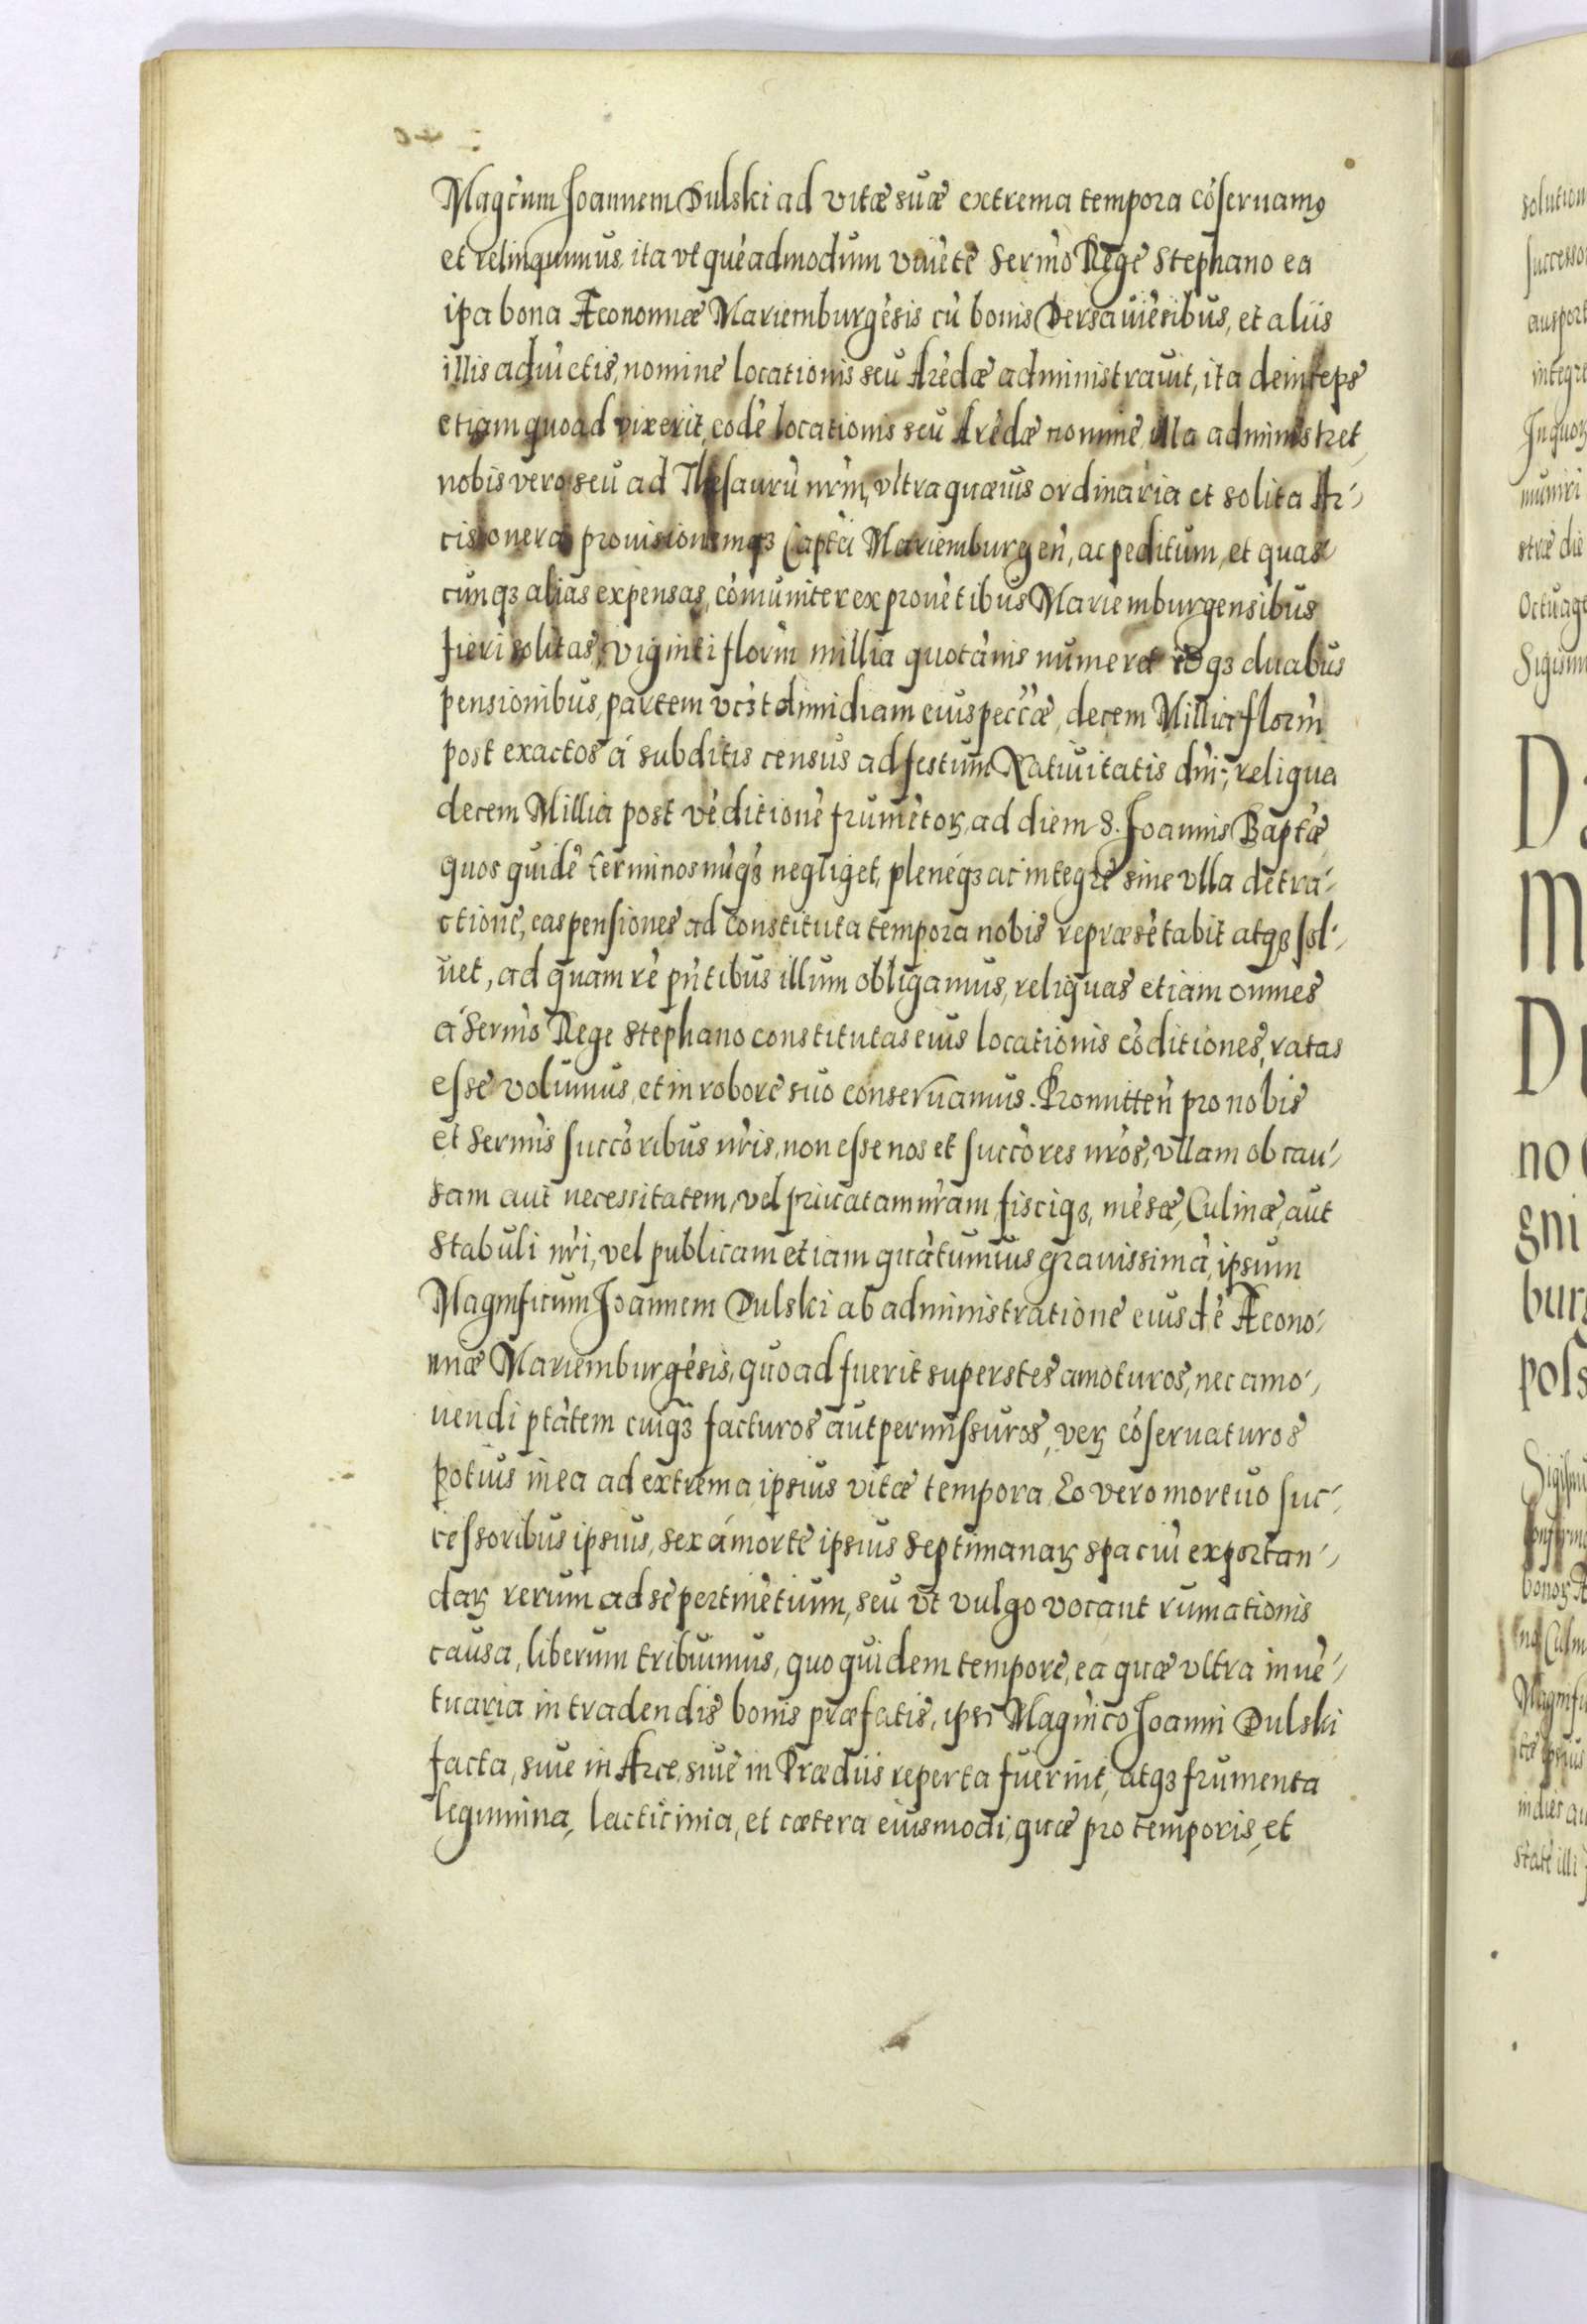 Magcum Joannem Dulski ad vitæ suæ extrema tempora cóseruamꝯ
et relinquimus, ita vt quéadmodum viuéte Sermo Rege Stephano ea
ipa bona Æconomiæ Mariemburgésis cù bonis Dersauiésibus, et aliis
illis adiuctis, nomine locationis seu Arédæ administrauit, ita deinceps
etiam quoad vixerit, eodé locationis seu Arédæ nomine illa administret,
nobis vero seu ad Thesaurù nrm, vltra quæuis ordinaria et solita Ar-
cis onera, prouisionemqꝫ Captei Mariemburgen, ac peditum, et quas
cunqꝫ alias expensas, cómuniter ex prouétibus Mariemburgensibus
fieri solitas, viginti florm millia quotànis numeret idqꝫ duabus
pensionibus, partem vcꝫt dimidiam eius peccæ, decem Millia florm
post exactos á subditis census ad festum Natiuitatis dni, reliqua
decem Millia post véditioné frumétoꝝ, ad diem S. Joannis Baptæ,
quos quidé terminos nùqꝫ negliget, plenéqꝫ ac integre sine vlla detra-
ctione, eas pensiones ad constituta tempora nobis repræsétabit atqꝫ sol-
uet, ad quam ré pntibus illum obligamus, reliquas etiam omnes
á Sermo Rege Stephano constitutas eius locationis códitiones, ratas
esse volumus, et in robore suo conseruamus. Promitten pro nobis
et Sermis succoribus nris, non esse nos et succores nros, vllam ob cau-
sam aut necessitatem, vel priuatam nram, fisciqꝫ, mésæ, Culinæ, aut
Stabuli nri, vel publicam etiam quátumuis grauissimà, ipsum
Magnificum Joannem Dulski ab administratione eiusdé Æcono-
miæ Mariemburgésis, quoad fuerit superstes amoturos, nec amo-
uendi ptàtem cuiqꝫ facturos aut permissuros, veꝝ cóseruaturos
potius in ea ad extrema ipsius vitæ tempora. Eo vero mortuo suc-
cessoribus ipsius, sex á morte ipsius Septimanaꝝ spaciù exportan-
daꝝ rerum ad se pertinétium, seu vt vulgo vocant rumationis
causa, liberum tribuimus, quo quidem tempore, ea quæ vltra inué-
tuaria in tradendis bonis præfatis, ipsi Magnico Joanni Dulski
facta, siue in Arce, siue in Prædiis reperta fuerint, atqꝫ frumenta
legumina, lacticinia, et cætera eiusmodi, quæ pro temporis, et